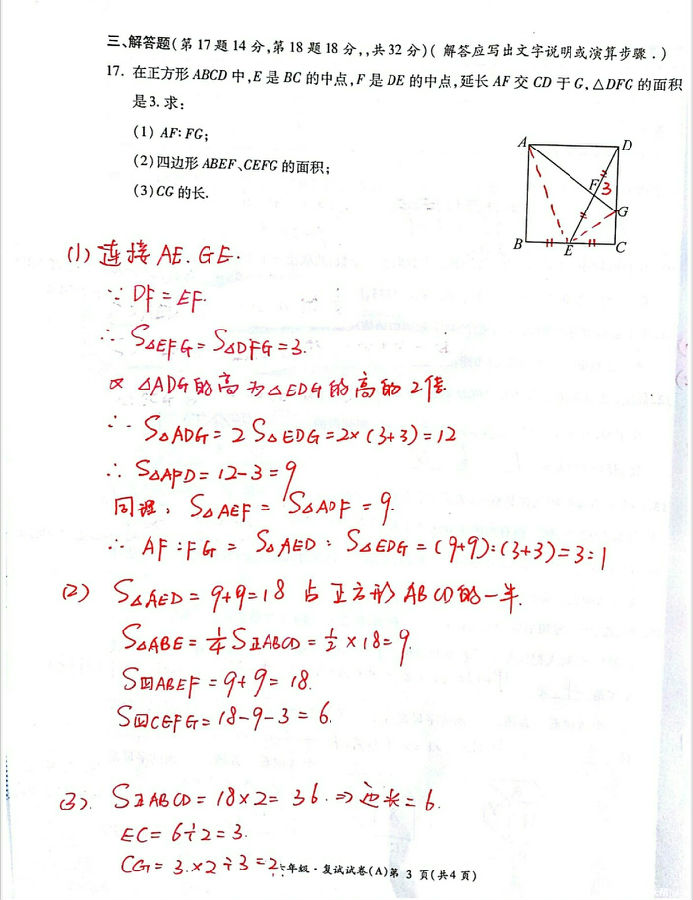 三、解答题(第17题14分,第18题18分,,共32分)(解答应写出文字说明或演算步骤.)
17. 在正方形ABCD中,E是BC的中点,F是DE的中点,延长AF交CD于G,△DFG的面积
是3.求:
(1) AF:FG;
(2)四边形ABEF、CEFG的面积;
(3)CG的长.
A
D
F
3
G
B
E
C
(1)连接AE.GE.
∵DF=EF.
∴S△EFG=S△DFG=3.
又△ADG的高为△EDG的高的2倍
∴S△ADG=2S△EDG=2×(3+3)=12
∴S△AFD=12-3=9
同理,S△AEF=S△ADF=9.
∴AF:FG=S△AED:S△EDG=(9+9):(3+3)=3:1
(2) S△AED=9+9=18占正方形ABCD的一半.
S△ABE=1/4S正ABCD=1/2×18=9.
S四ABEF=9+9=18.
S四CEFG=18-9-3=6.
(3). S正ABCD=18×2=36.⇒边长=6.
EC=6÷2=3.
CG=3.×2÷3=2.
六年级·复试试卷(A)第 3 页(共4页)